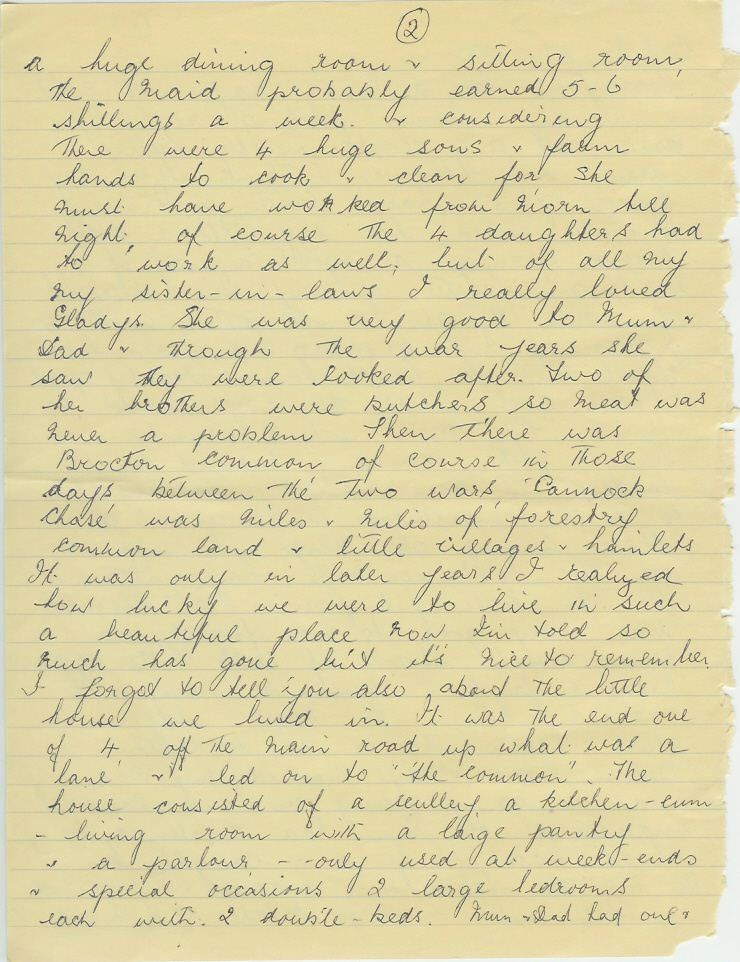 2
a huge dining room & sitting room,
The Maid probably earned 5-6
shillings a week. & considering
There were 4 huge sons & farm
hands to cook & clean for she
must have worked from Morn till
Night, of course The 4 daughters had
to work as well, but of all my
my sister-in-laws I really loved
Gladys. She was very good to Mum &
Dad & Through The war years she
saw They were looked after. Two of
her brothers were butchers so meat was
never a problem Then There was
Brocton Common of course in Those
days between The Two wars, 'Cannock
Chase' was Miles & Miles of forestry
common land & little villages & hamlets
It was only in later years I realized
how lucky we were to live in such
a beautiful place now I'm told so
much has gone but it's nice to remember
I forgot to tell you also about The little
house we lived in. It was The end one
of 4, off The main road up what was a
lane, & led on to "the common". The
house consisted of a scullery a kitchen-cum
- living room with a large pantry
& a parlour -- only used at week-ends
& special occasions 2 large bedrooms
each with 2 double-beds. Mum & Dad had one &